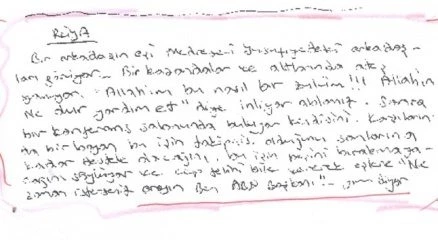 Rüya
Bir arkadaşın eşi Medrese-i Yusufiyedeki arkadaş-
ları görüyor... Bir kazandalar ve altlarında ateş
yanıyor. "Allahım bu nasıl bir zulüm!!! Allahım
Ne olur yardım et" diye inliyor ablamız. Sonra
bir konferans salonunda buluyor kendisini. Karşıların-
da bir bayan bu işin takipçisi olduğunu sonlarına
kadar destek olacağını, bu işin peşini bırakmaya-
cağını söylüyor ve cep telini bile vererek "Ne
zaman isterseniz arayın Ben ABD Başkanı"... diyor